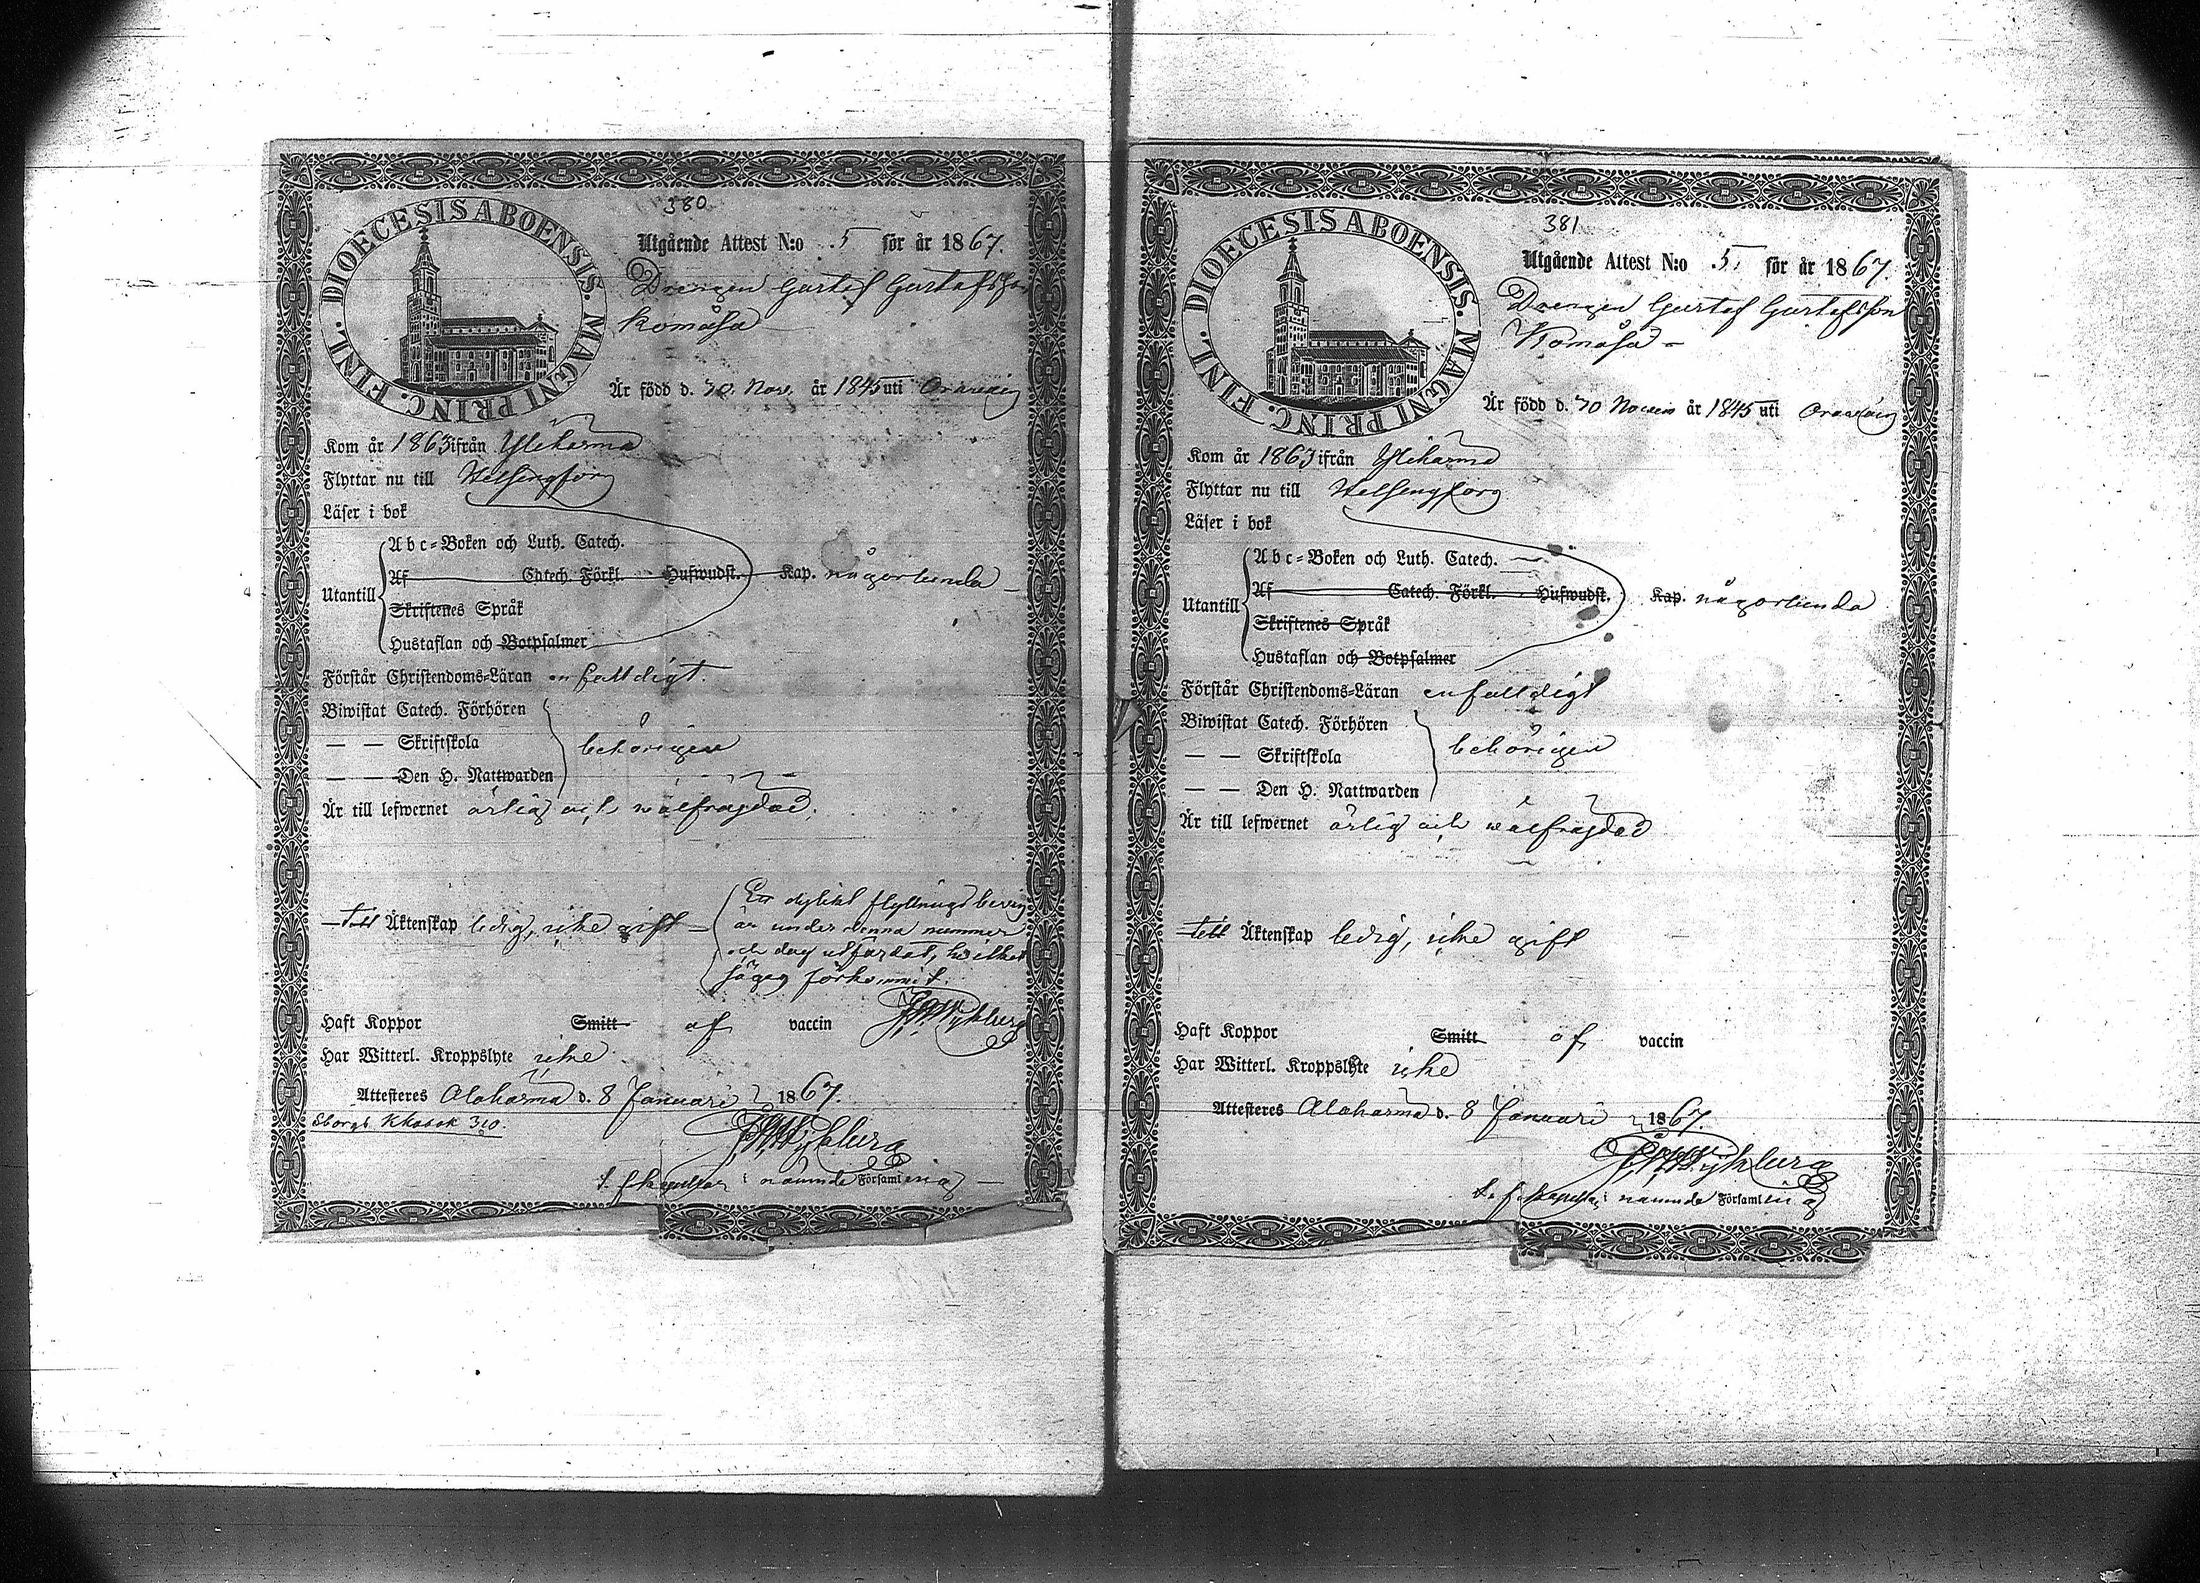 380
DIOECESIS ABOENSIS. MAGNI PRINC. FINL.
Utgående Attest N:o 5 för år 1867.
Drengen Gustaf Gustafsson
Komåsa
Är född d. 30 Nov. år 1845 uti Oravais
Kom år 1863 ifrån Ylikarma
Flyttar nu till Helsingfors
Läser i bok
Utantill
Abc-Boken och Luth. Catech.
Af Catech. Förkl. Hufwudst. Kap. någorlunda
Skriftenes Språk
Hustaflan och Botpsalmer
Förstår Christendoms-Läran enfalldigt.
Biwistat Catech. Förhören
— — Skriftskola behörigen
— — Den H. Nattwarden
Är till lefwernet ärlig och wälfrägdad.
till Äktenskap ledig, icke gift —
En dylikt flyttningsbevis
är under denna nummer
och dag utfärdat, hvilket
säges förkommit.
Haft Koppor Smitt af vaccin
Har Witterl. Kroppslyte icke
Attesteres Alaharma d. 8 Januari 1867.
310.
i nämnde Församling —
381
DIOECESIS ABOENSIS. MAGNI PRINC. FINL.
Utgående Attest N:o 5. för år 1867.
Drengen Gustaf Gustafsson
Komåsa —
Är född d. 30 år 1845 uti Oravais
Kom år 1863 ifrån Ylikarma
Flyttar nu till Helsingfors
Läser i bok
Utantill
Abc-Boken och Luth. Catech.
Af Catech. Förkl. Hufwudst. Kap. någorlunda
Skriftenes Språk
Hustaflan och Botpsalmer
Förstår Christendoms-Läran enfalldigt
Biwistat Catech. Förhören
— — Skriftskola behörigen
— — Den H. Nattwarden
Är till lefwernet ärlig och wälfrägdad
till Äktenskap ledig, icke gift
Haft Koppor Smitt af vaccin
Har Witterl. Kroppslyte icke
Attesteres Alaharma d. 8 Januari 1867.
i nämnde Församling